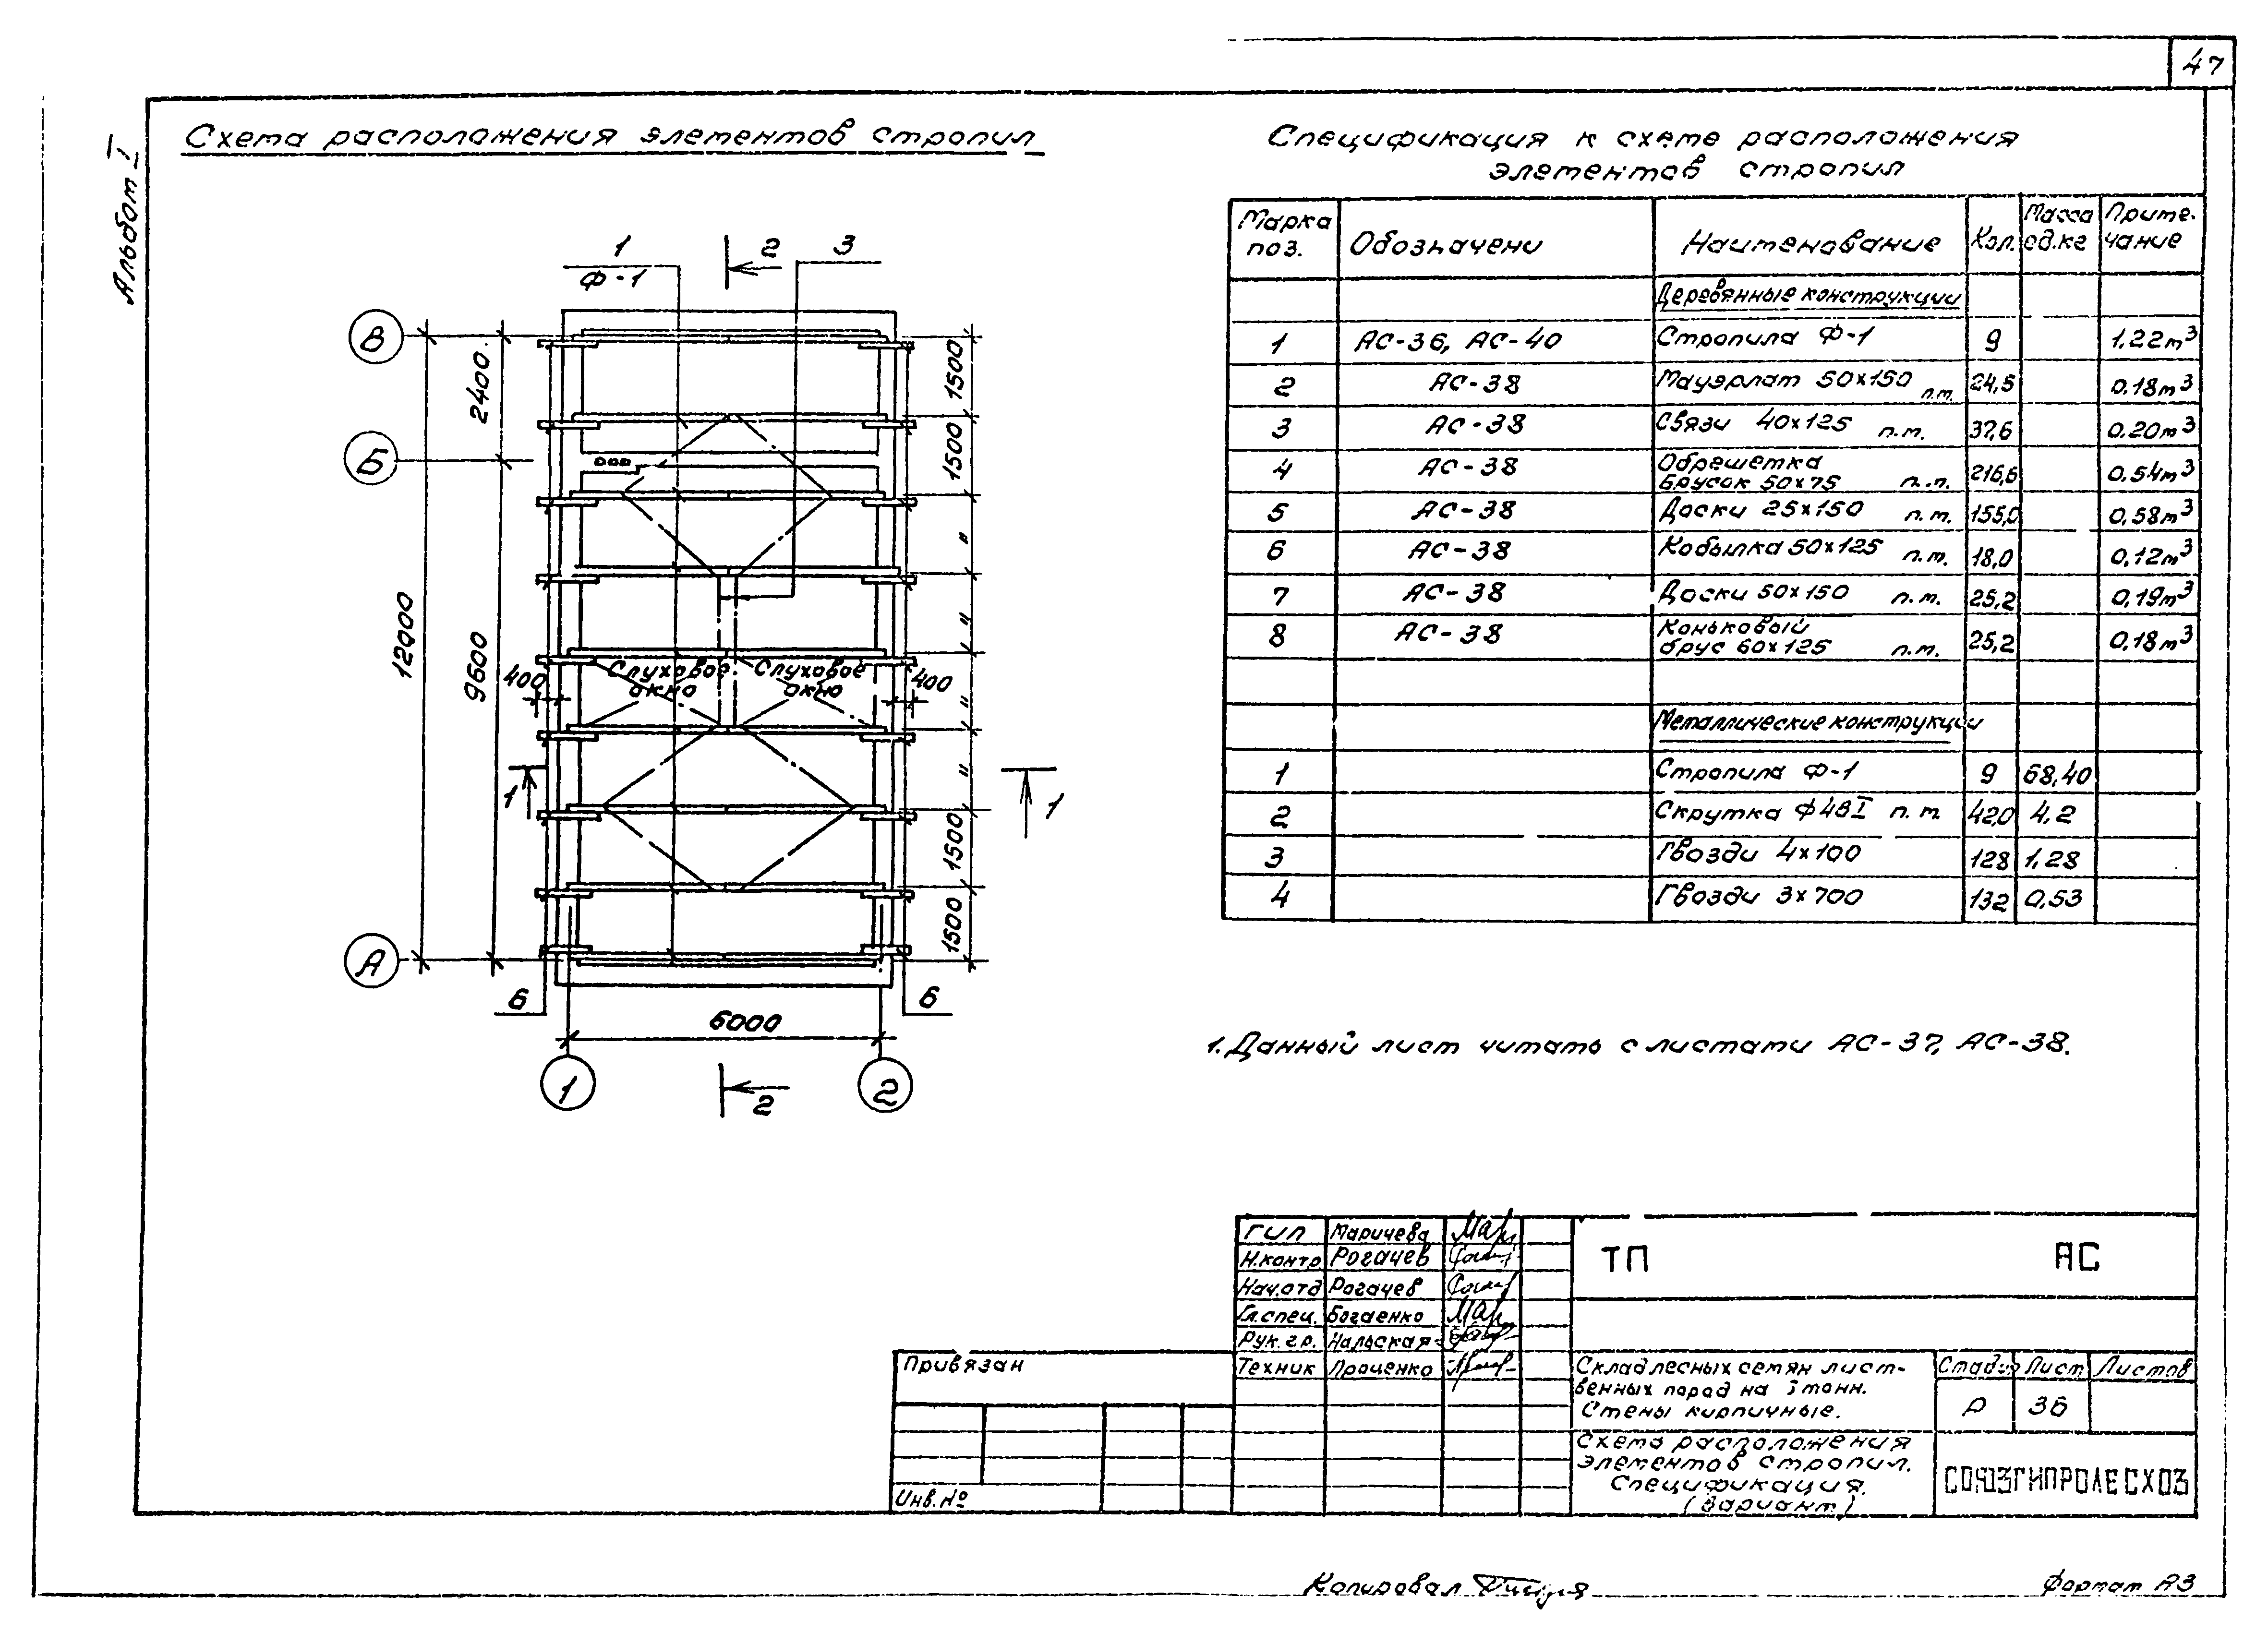 47
Альбом I
Схема расположения элементов стропил
1
Ф-1
2
3
В
Б
А
2400
9600
12000
1500
1500
"
"
"
"
1500
1500
Слуховое окно
Слуховое окно
400
400
1
1
6
6
6000
1
2
2
Спецификация к схеме расположения
элементов стропил
Марка поз. Обозначени Наименование Кол. Масса ед.кг Приме-чание
Деревянные конструкции
1 АС-36, АС-40 Стропила Ф-1 9 1.22м³
2 АС-38 Мауэрлат 50х150 п.м. 24,5 0.18м³
3 АС-38 Связи 40х125 п.м. 37,6 0.20м³
4 АС-38 Обрешетка брусок 50х75 п.п. 216,6 0.54м³
5 АС-38 Доски 25х150 п.м. 155,0 0,58м³
6 АС-38 Кобылка 50х125 п.м. 18,0 0,12м³
7 АС-38 Доски 50х150 п.м. 25,2 0,19м³
8 АС-38 Коньковый брус 60х125 п.м. 25,2 0,18м³
Металлические конструкции
1 Стропила Ф-1 9 68,40
2 Скрутка ф4ВI п.м. 42,0 4,2
3 Гвозди 4х100 128 1,28
4 Гвозди 3х700 132 0,53
1. Данный лист читать с листами АС-37, АС-38.
ГИП Маричева
Н.контр Рогачев
Нач.отд Рогачев
Гл.спец. Богаенко
Рук.гр. Нальская
Техник Проценко
ТП АС
Привязан
Инв.№
Склад лесных семян лист-
венных пород на 1 тонн.
Стены кирпичные.
Стадия Лист Листов
Р 36
Схема расположения
элементов стропил.
Спецификация.
(Вариант)
СОЮЗГИПРОЛЕСХОЗ
Копировал
Формат А3